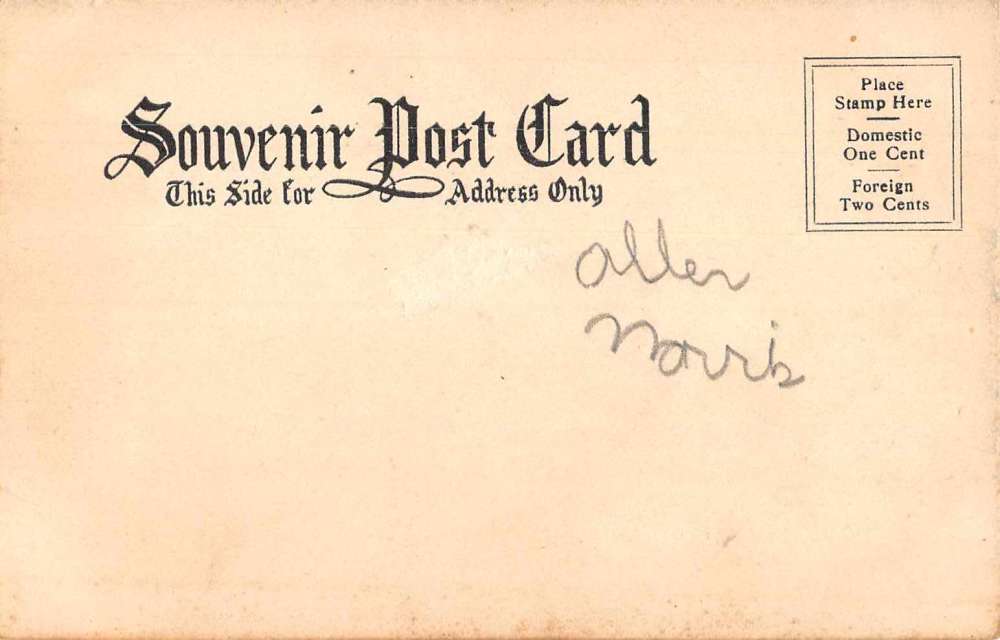 Souvenir Post Card
This Side for Address Only
Place
Stamp Here
Domestic
One Cent
Foreign
Two Cents
Allen
Norris